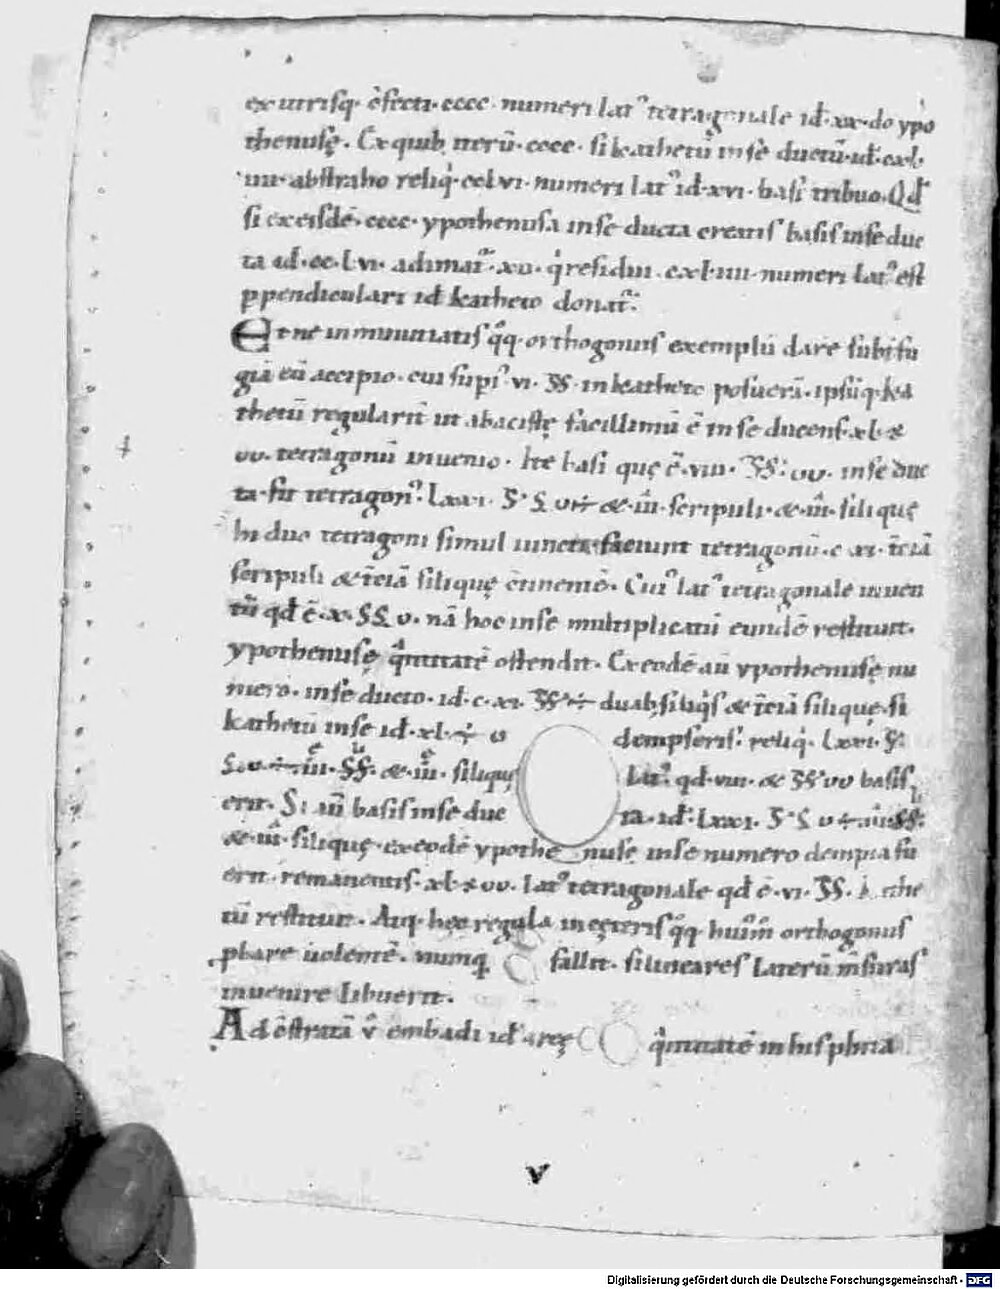 ex utrisq. c̄fecti. cccc. numeri lat᷒ tetragonale id. xx. do ypo
thenusę. Ex quib; iterū. cccc. si kathetū in sē ductū. id. cxl.
iiii. abstraho reliq̇. cclvi. numeri lat᷒ id. xvi. basi tribuo. Qđ
si ex eisdē. cccc. ypothenusa in se ducta creatis basis in se duc
ta id. cc. lvi. adimat᷒. q̇ residui. cxl. iiii. numeri lat᷒ est
ppendiculari id katheto donat᷒.
Et ne in minutiatis q̇q. orthogoniis exemplū dare subisu
giā eū accipio. cui sup᷒. vi. SS. in katheto posuerā. ipsūq. ka
thetū regularit̄ ut abacistę facillimū ē in se ducens. xl. &
tetragonū inuenio. Ite basi quę ē. viii. in se duc
ta. fit tetragon᷒. lxxi. &. iii. scripuli. &. iii. siliquę
hi duo tetragoni simul iuncti. faciunt tetragonū. c xi. t̄ciā
scripuli & t̄ciā siliquę Cui᷒ lat᷒ tetragonale inuen
tū qđ ē. x. SS. nā hoc in se multiplicatū eundē restituit.
ypothenusę q̇ntitatē ostendit. Ex eodē aū ypothenusę nu
mero. in se ducto. id. c. xi. duab; siliq̇s & t̄ciā siliquę. si
kathetū in se id. xl. dempseris. reliq̇. lxxi.
iii. SS. &. iii. siliquę lat᷒. qđ. viii. & basis
erit. Si aū basis in se duc ta. id. lxxi.
&. iii. siliquę. ex eodē ypothe nusę in se numero dempta fu
erit. remanentis. xl. lat᷒ tetragonale qđ ē. vi. SS. kathe
tū restituit. Atq. hęc regula in cęteris q̇q. huiꝰm̄ orthogoniis
pbare uolentē. numq. fallit. si lineares laterū m̄suras
inuenire libuerit.
Ad c̄stratā v̇ embadi id areę q̇ntitatē in his phita
v
Digitalisierung gefördert durch die Deutsche Forschungsgemeinschaft - DFG